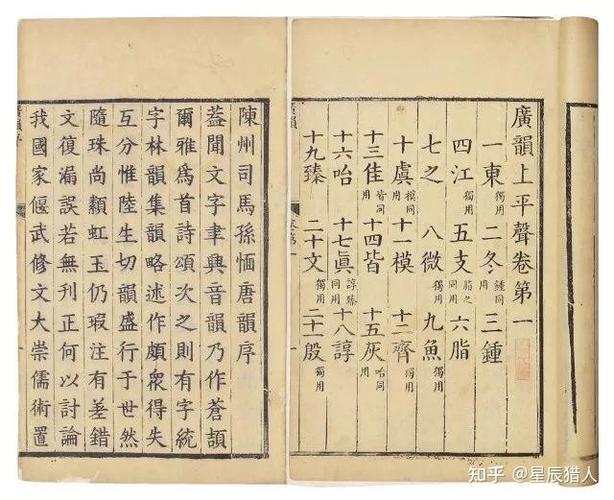 廣韻上平聲卷第一
一東獨用 二冬鍾同用 三鍾
四江獨用 五支脂之同用 六脂
七之 八微獨用 九魚獨用
十虞模同用 十一模 十二齊獨用
十三佳皆同用 十四皆 十五灰咍同用
十六咍 十七眞諄臻同用 十八諄
十九臻 二十文獨用 二十一殷獨用
陳州司馬孫愐唐韻序
蓋聞文字聿興音韻乃作蒼頡
爾雅爲首詩頌次之則有字統
字林韻集韻略述作頗衆得失
互分惟陸生切韻盛行于世然
隨珠尚纇虹玉仍瑕注有差錯
文復漏誤若無刊正何以討論
我國家偃武修文大崇儒術置
知乎 @星辰猎人